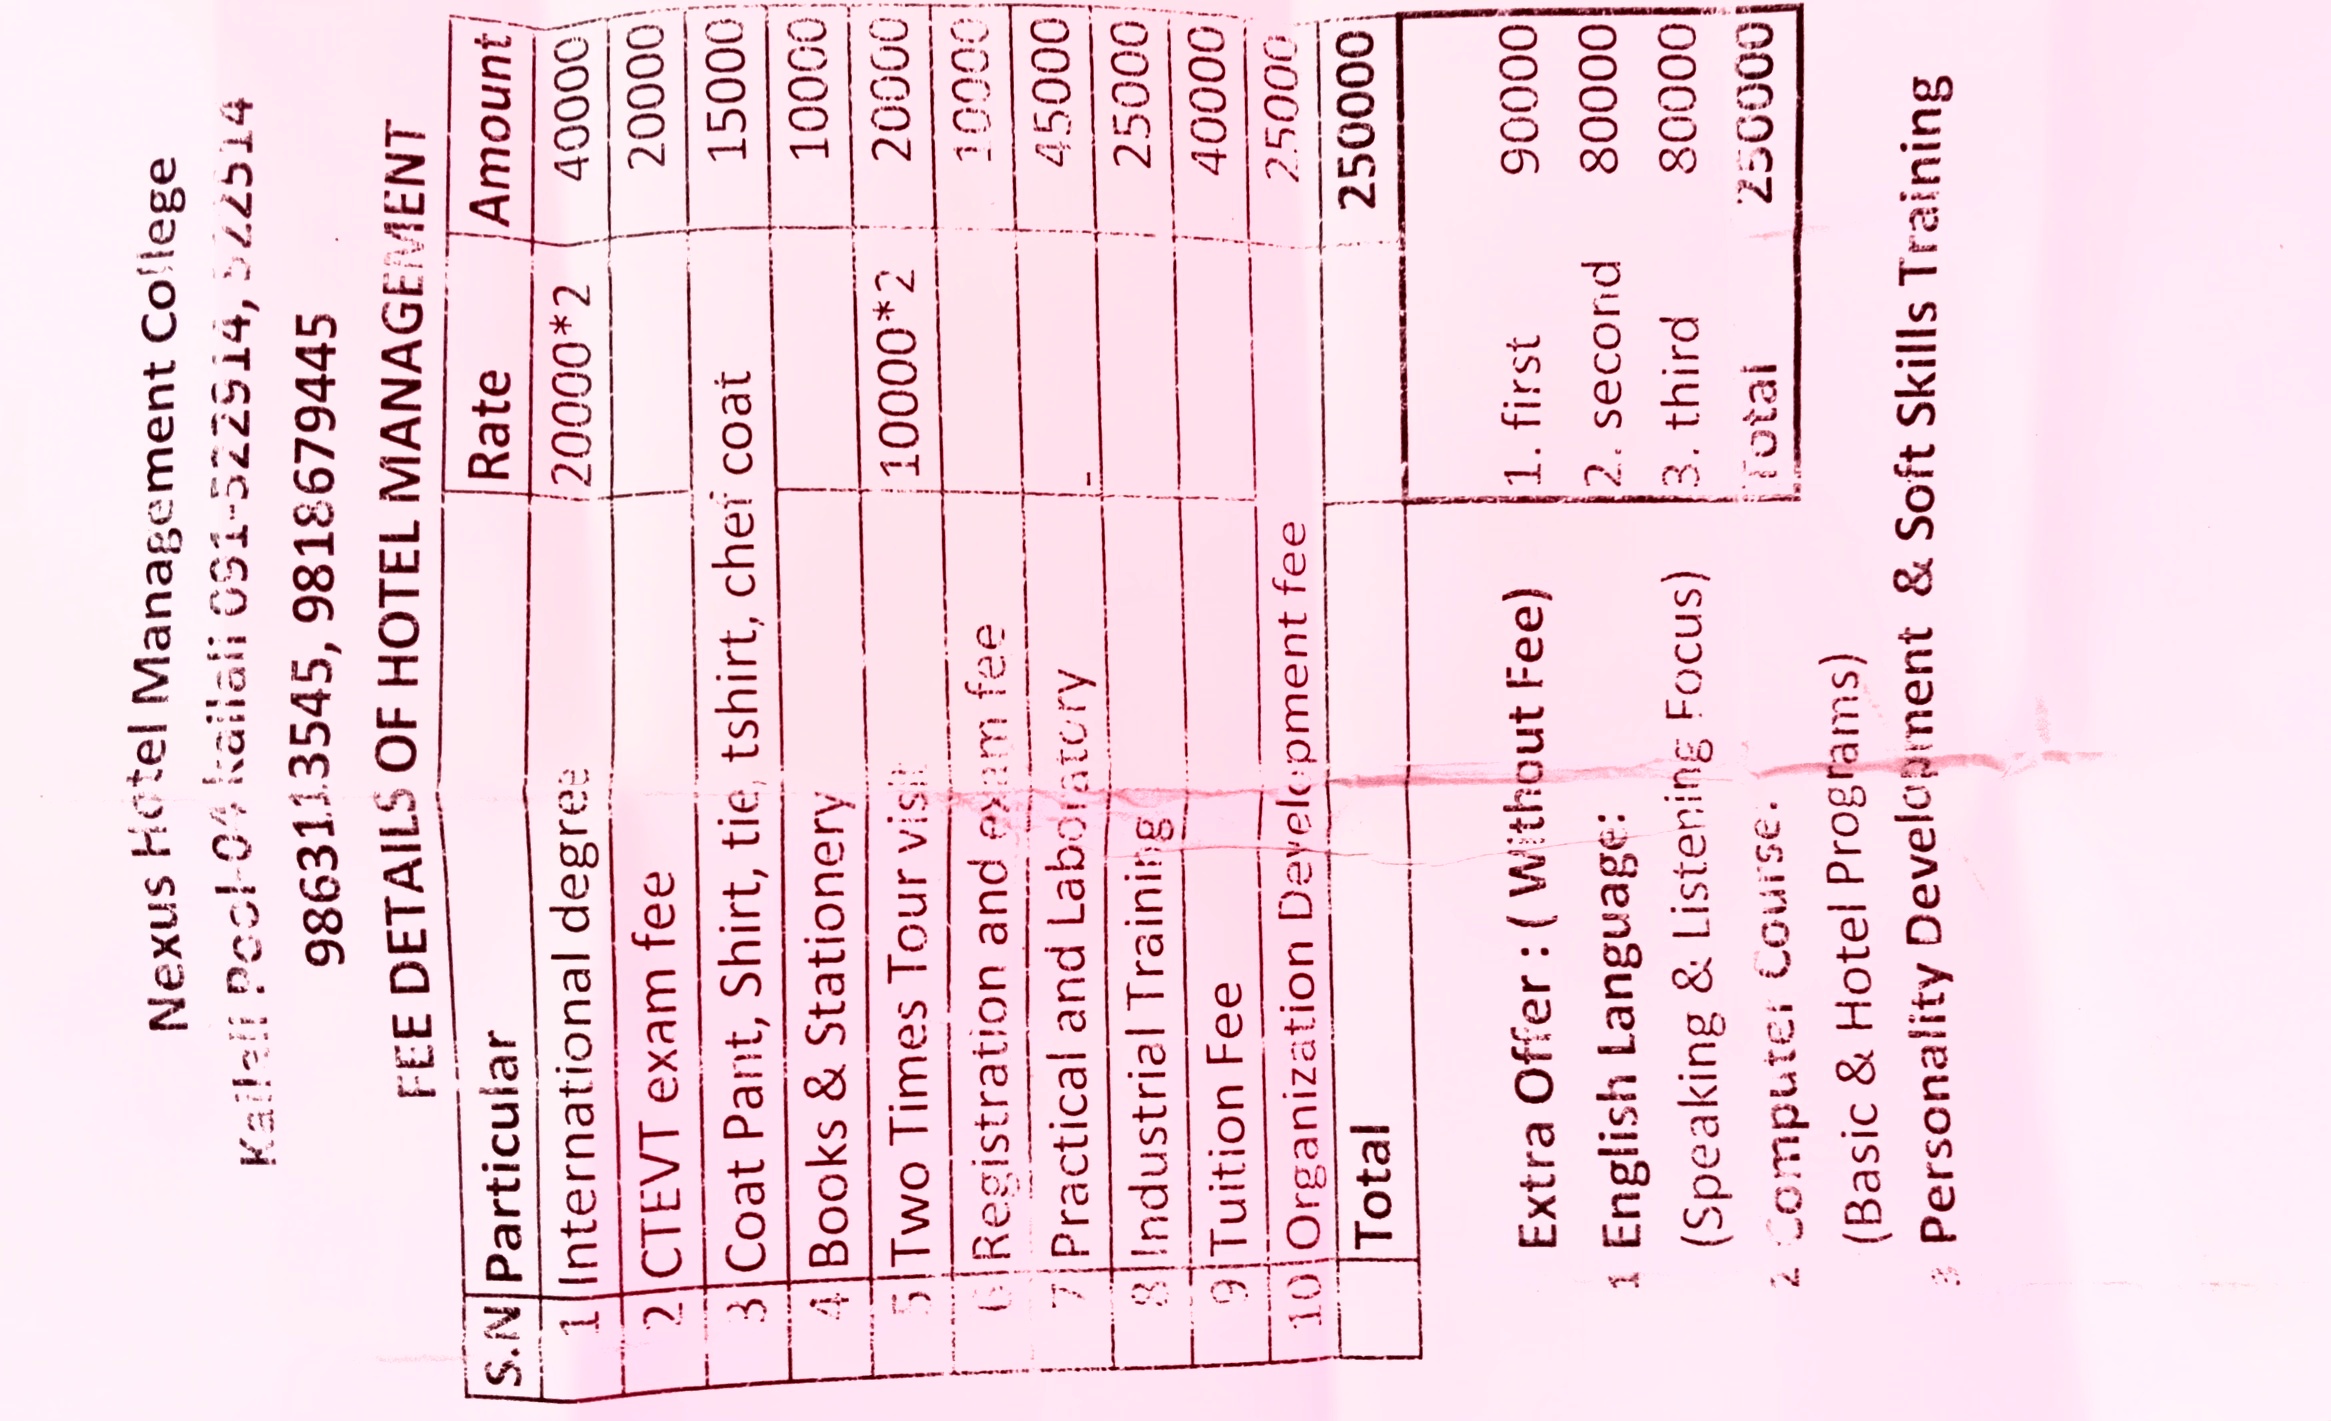 Nexus Hotel Management College
Kailali Pool-04 kailali 091-522914, 522514
9863113545, 9818679445
FEE DETAILS OF HOTEL MANAGEMENT
S.N Particular Rate Amount
1 International degree 20000*2 40000
2 CTEVT exam fee 20000
3 Coat Pant, Shirt, tie, tshirt, chef coat 15000
4 Books & Stationery 10000
5 Two Times Tour visit 10000*2 20000
6 Registration and exam fee 10000
7 Practical and Laboratory - 45000
8 Industrial Training 25000
9 Tuition Fee 40000
10 Organization Development fee 25000
Total 250000
Extra Offer : ( Without Fee)
1 English Language:
(Speaking & Listening Focus)
2 Computer Course:
(Basic & Hotel Programs)
3 Personality Development & Soft Skills Training
1. first 90000
2. second 80000
3. third 80000
Total 250000